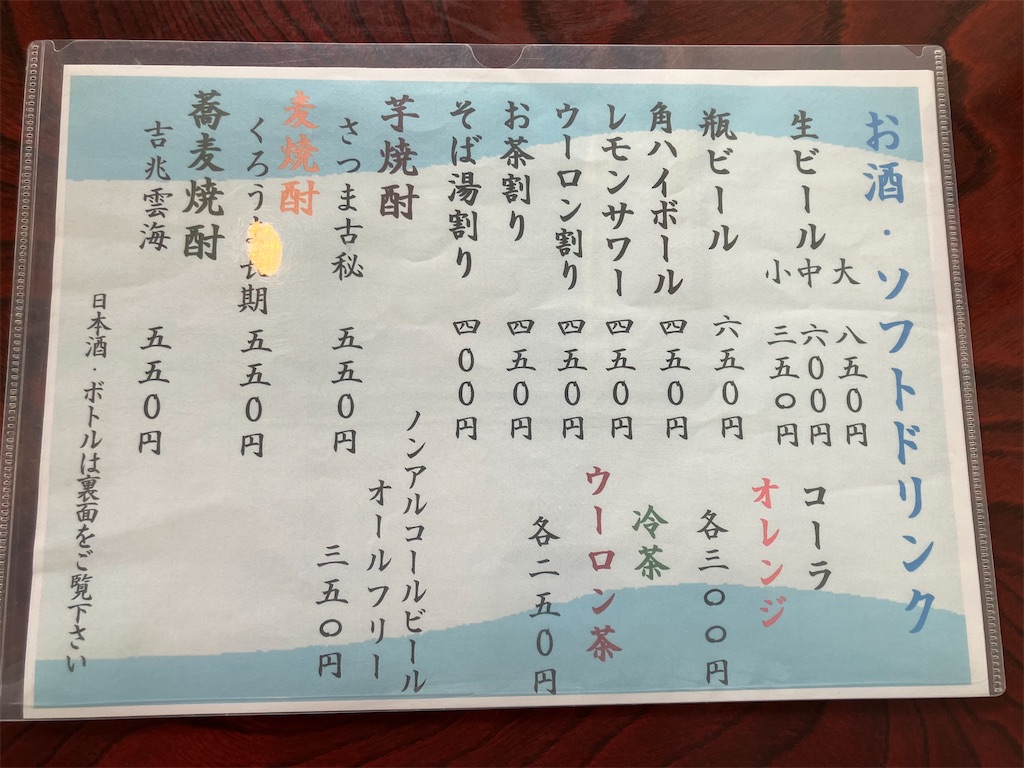 お酒・ソフトドリンク
生ビール
大 八五〇円
中 六〇〇円
小 三五〇円
瓶ビール 六五〇円
角ハイボール 四五〇円
レモンサワー 四五〇円
ウーロン割り 四五〇円
お茶割り 四五〇円
そば湯割り 四〇〇円
芋焼酎
さつま古秘 五五〇円
麦焼酎
くろうま長期 五五〇円
蕎麦焼酎
吉兆雲海 五五〇円
コーラ
オレンジ
各三〇〇円
冷茶
ウーロン茶
各二五〇円
ノンアルコールビール
オールフリー
三五〇円
日本酒・ボトルは裏面をご覧下さい